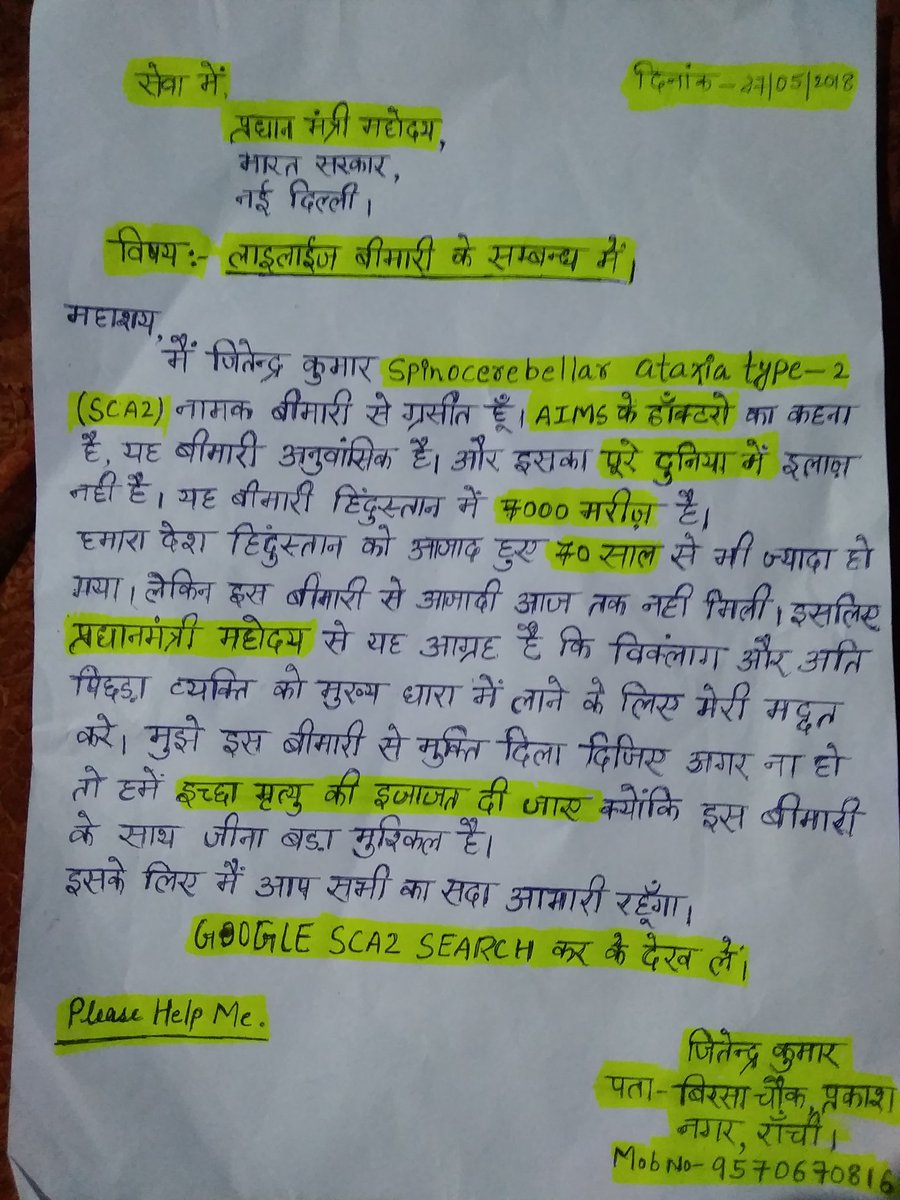 सेवा में,
दिनांक - 27/05/2018
प्रधान मंत्री महोदय,
भारत सरकार,
नई दिल्ली।
विषय:- लाइलाईज बीमारी के सम्बन्ध में।
महाशय,
मैं जितेन्द्र कुमार Spinocerebellar ataxia type-2
(SCA2) नामक बीमारी से ग्रसीत हूँ। AIMS के डॉक्टरो का कहना
है, यह बीमारी अनुवांसिक है। और इसका पूरे दुनिया में इलाज़
नही है। यह बीमारी हिंदुस्तान में 7000 मरीज़ है।
हमारा देश हिंदुस्तान को आजाद हुए 70 साल से भी ज्यादा हो
गया। लेकिन इस बीमारी से आजादी आज तक नही मिली। इसलिए
प्रधानमंत्री महोदय से यह आग्रह है कि विक्लाग और अति
पिछड़ा व्यक्ति को मुख्य धारा में लाने के लिए मेरी मद्दत
करे। मुझे इस बीमारी से मुक्ति दिला दिजिए अगर ना हो
तो हमें इच्छा मृत्यु की इजाजत दी जाए क्योंकि इस बीमारी
के साथ जीना बड़ा मुश्किल है।
इसके लिए मैं आप सभी का सदा आभारी रहूँगा।
GOOGLE SCA2 SEARCH कर के देख लें।
Please Help Me.
जितेन्द्र कुमार
पता- बिरसा चौक, प्रकाश
नगर, राँची।
Mob No- 9570670816